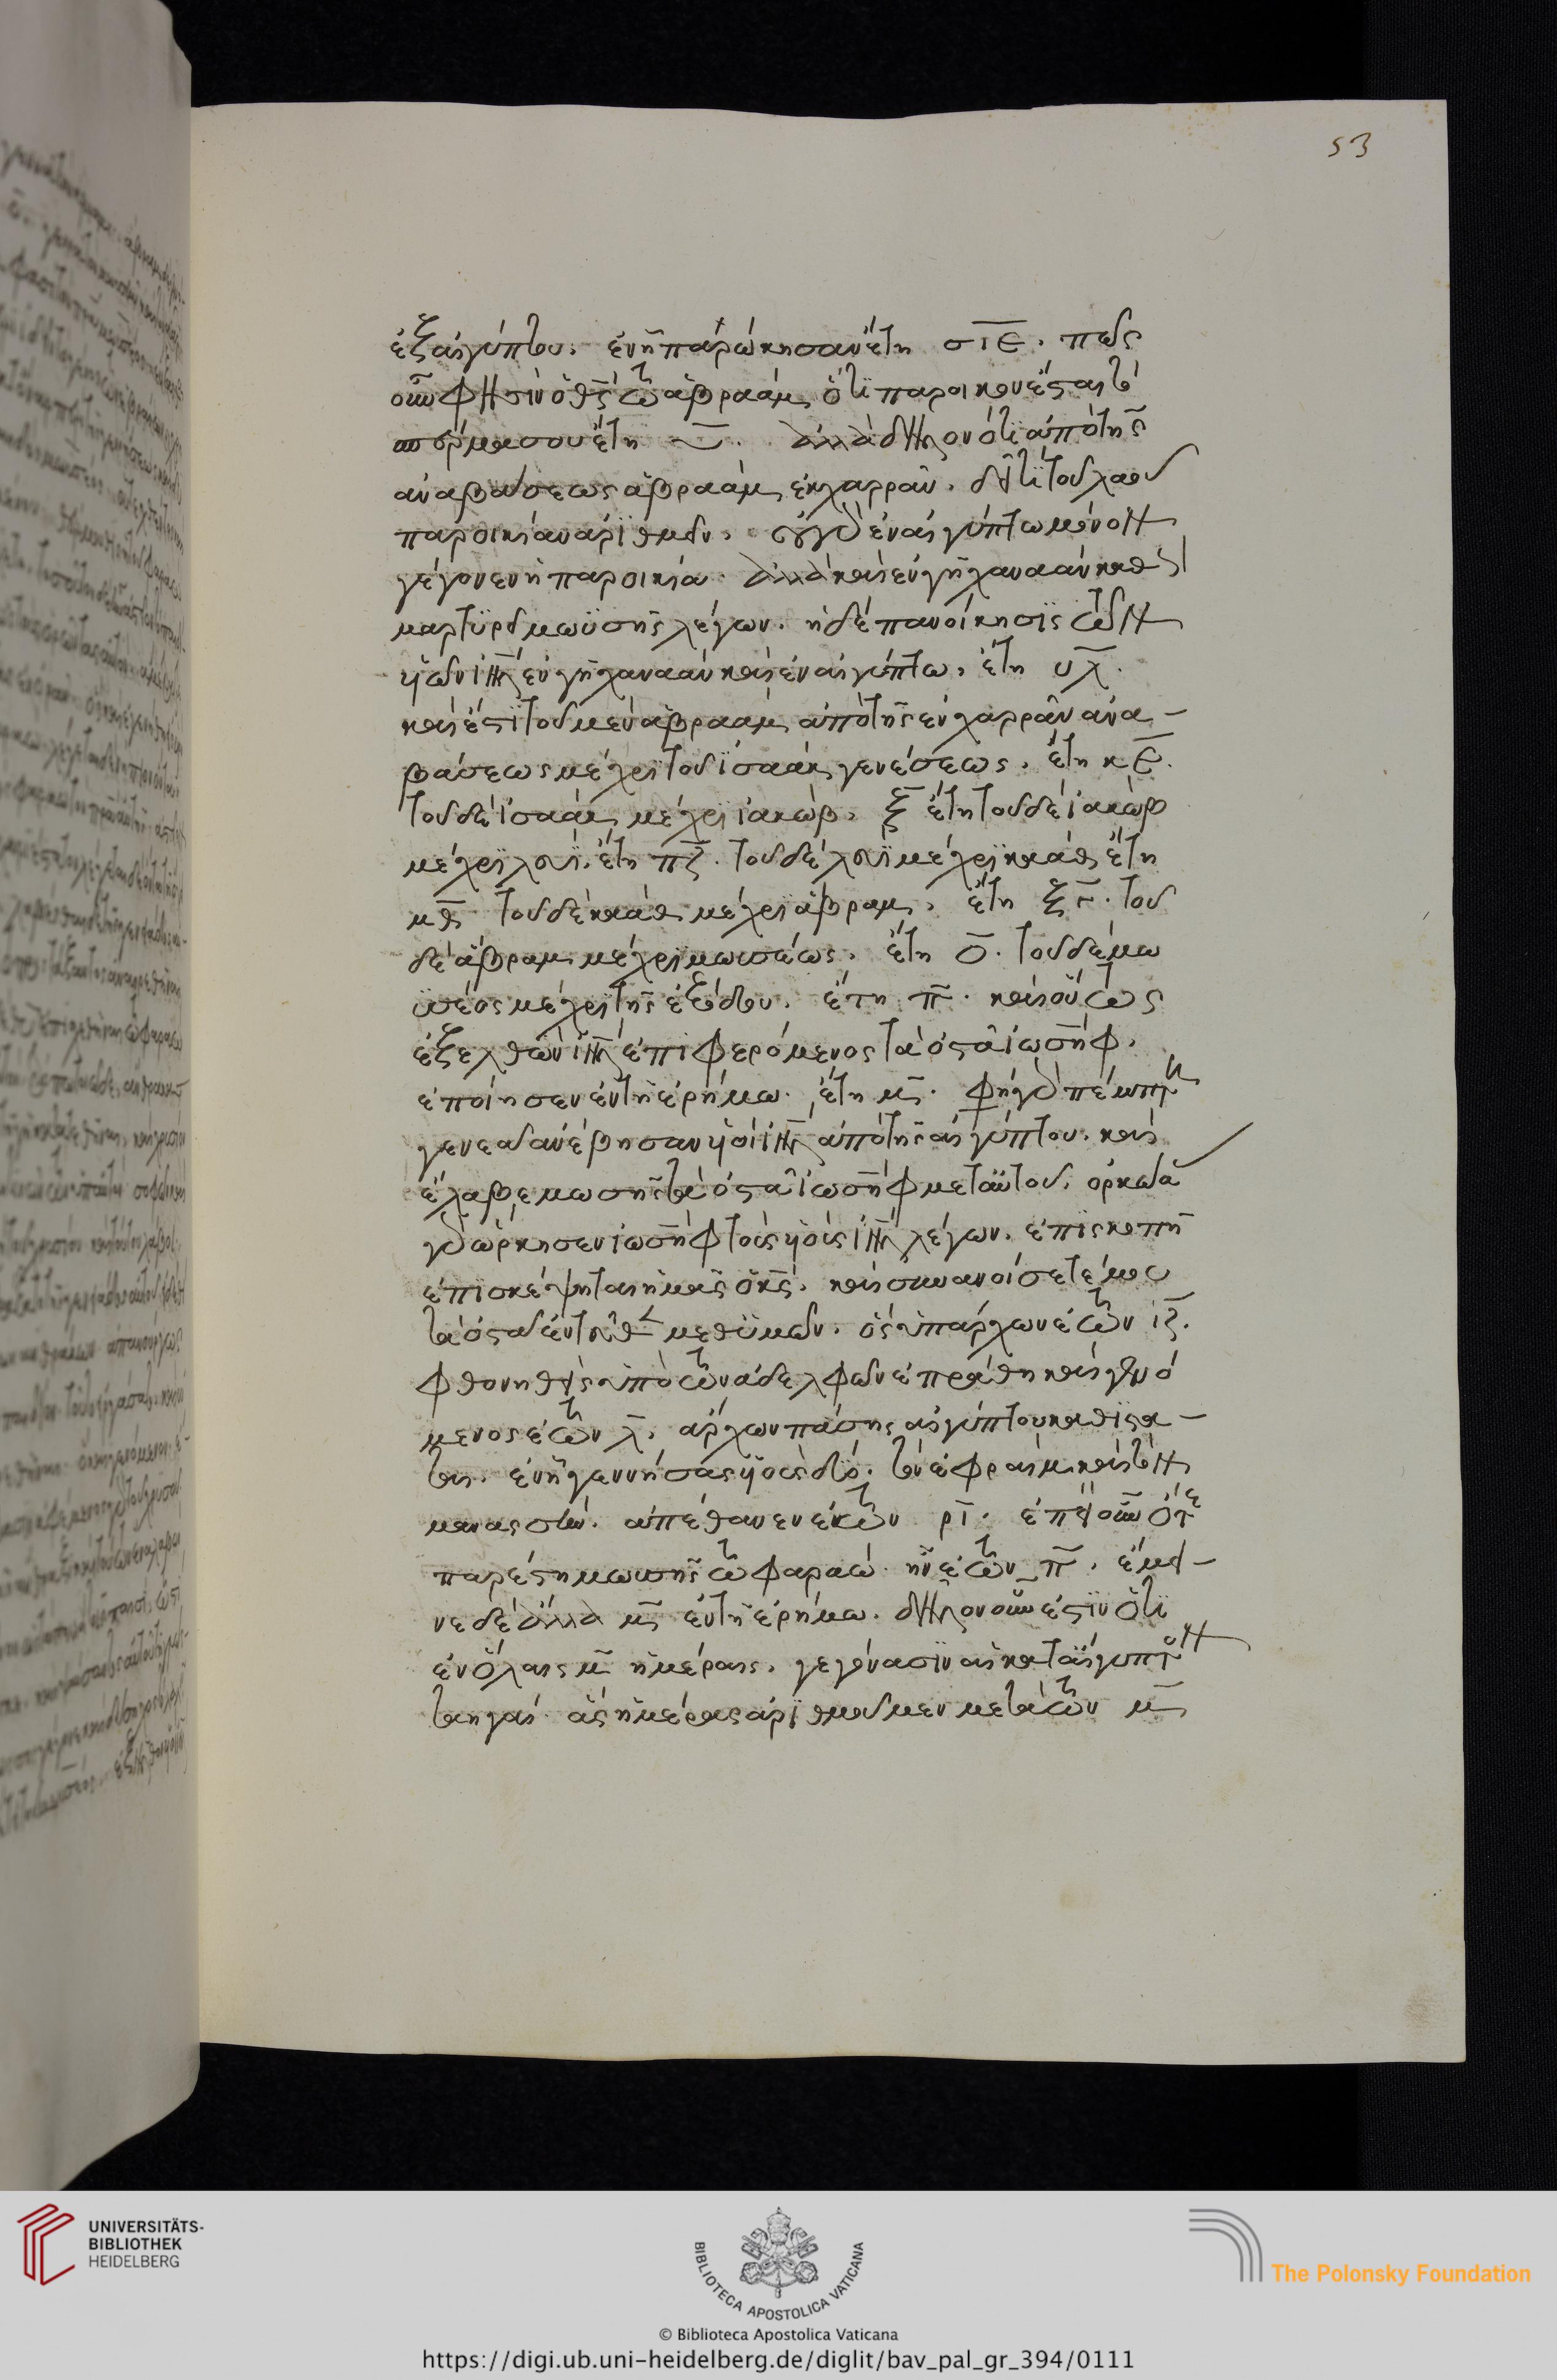 53
ἐξ αἰγύπτου. ἐν ἧ παρώκησαν ἔτη σιε. πῶς
οὖν φησὶν ὁ θς τῶ ἀβραάμ, ὅτι πάροικον ἔσται τὸ
σπέρμα σου ἔτη υ. ἀλλὰ δῆλον ὅτι ἀπὸ τῆς
ἀναβάσεως ἀβραάμ, ἐκ χαρρὰν. δεῖ τὴν τοῦ λαοῦ
παροικίαν ἀριθμεῖν. οὐ γὰρ ἐν αἰγύπτω μόνον
γέγονεν ἡ παροικία. ἀλλὰ καὶ ἐν γῆ χαναὰν καθὼς
μαρτυρεῖ μωϋσῆς λέγων. ἡ δὲ πανοίκησις τῶν
υἱῶν ιηλ ἐν γῆ χαναὰν καὶ ἐν αἰγύπτω. ἔτη υλ.
καὶ ἔστι τοῦ μὲν ἀβραάμ, ἀπὸ τῆς ἐν χαρρὰν ἀνα-
βάσεως μέχρι τοῦ ἰσαάκ γενέσεως. ἔτη κε.
τοῦ δὲ ἰσαάκ, μέχρι ἰακώβ. ξ ἔτη τοῦ δὲ ἰακώβ
μέχρι λευΐ. ἔτη πζ. τοῦ δὲ λευΐ μέχρι καάθ ἔτη
μς τοῦ δὲ καάθ μέχρι ἄβραμ. ἔτη ξγ. τοῦ
δὲ ἄβραμ. μέχρι μωϋσέως. ἔτη ο. τοῦ δὲ μω
ϋσέος μέχρι τῆς ἐξόδου. ἔτη π. καὶ οὕτως
ἐξελθὼν ιηλ ἐπιφερόμενος τὰ ὀστᾶ ἰωσήφ.
ἐποίησεν ἐν τῆ ἐρήμω. ἔτη μ. φη γὰρ πέμπτη
γενεᾶ ἀνέβησαν υἱοὶ ιηλ ἀπὸ τῆς αἰγύπτου. καὶ
ἔλαβε μωσῆς τὰ ὀστᾶ ἰωσὴφ μεταὐτοῦ. ὅρκω
γὰρ ὥρκησεν ἰωσὴφ τοῖς υἱοῖς ιηλ λέγων. ἐπισκοπῆ
ἐπισκέψηται ἡμᾶς ὁ κς. καὶ συνανοίσετέ μου
τὰ ὀστᾶ ἐντεῦθεν μεθϋμῶν. ὃς ὑπάρχων ἐτῶν ιζ.
φθονηθεὶς ὑπὸ τῶν ἀδελφῶν ἐπράθη καὶ γενό
μενος ἐτῶν λ. ἄρχων πάσης αἰγύπτου καθίστα-
ται. ἐν ἧ γεννήσας υἱοὺς δύο. τὸν ἐφραὶμ καὶ τὸν
μανασσῆν. ἀπέθανεν ἐτῶν ρι. ἐπεὶ οὖν ὅτε
παρέστη μωυσῆς τῶ φαραῶ. ἦν ἐτῶν π. ἔμει-
νε δὲ ἄλλα μ ἐν τῆ ἐρήμω. δῆλον οὖν ἐστιν ὅτι
ἐν ὅλαις μ ἡμέραις. γεγόνασιν αἱ καταἴγυπτον
πληγαί. ἃς ἡμέρας ἀριθμοῦμεν μετὰ τῶν μ
UNIVERSITÄTS-
BIBLIOTHEK
HEIDELBERG
BIBLIOTECA APOSTOLICA VATICANA
The Polonsky Foundation
© Biblioteca Apostolica Vaticana
https://digi.ub.uni-heidelberg.de/diglit/bav_pal_gr_394/0111